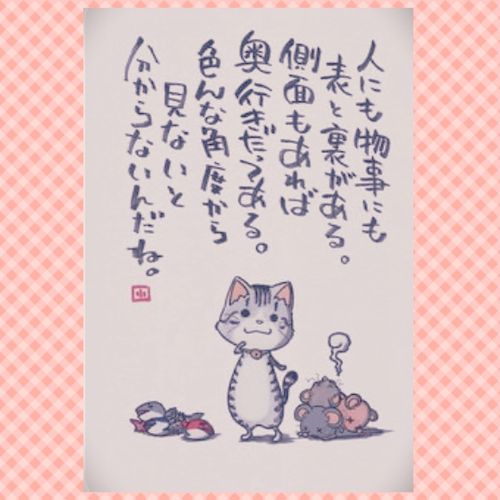 人にも物事にも
表と裏がある。
側面もあれば
奥行きだってある。
色んな角度から
見ないと
分からないんだね。